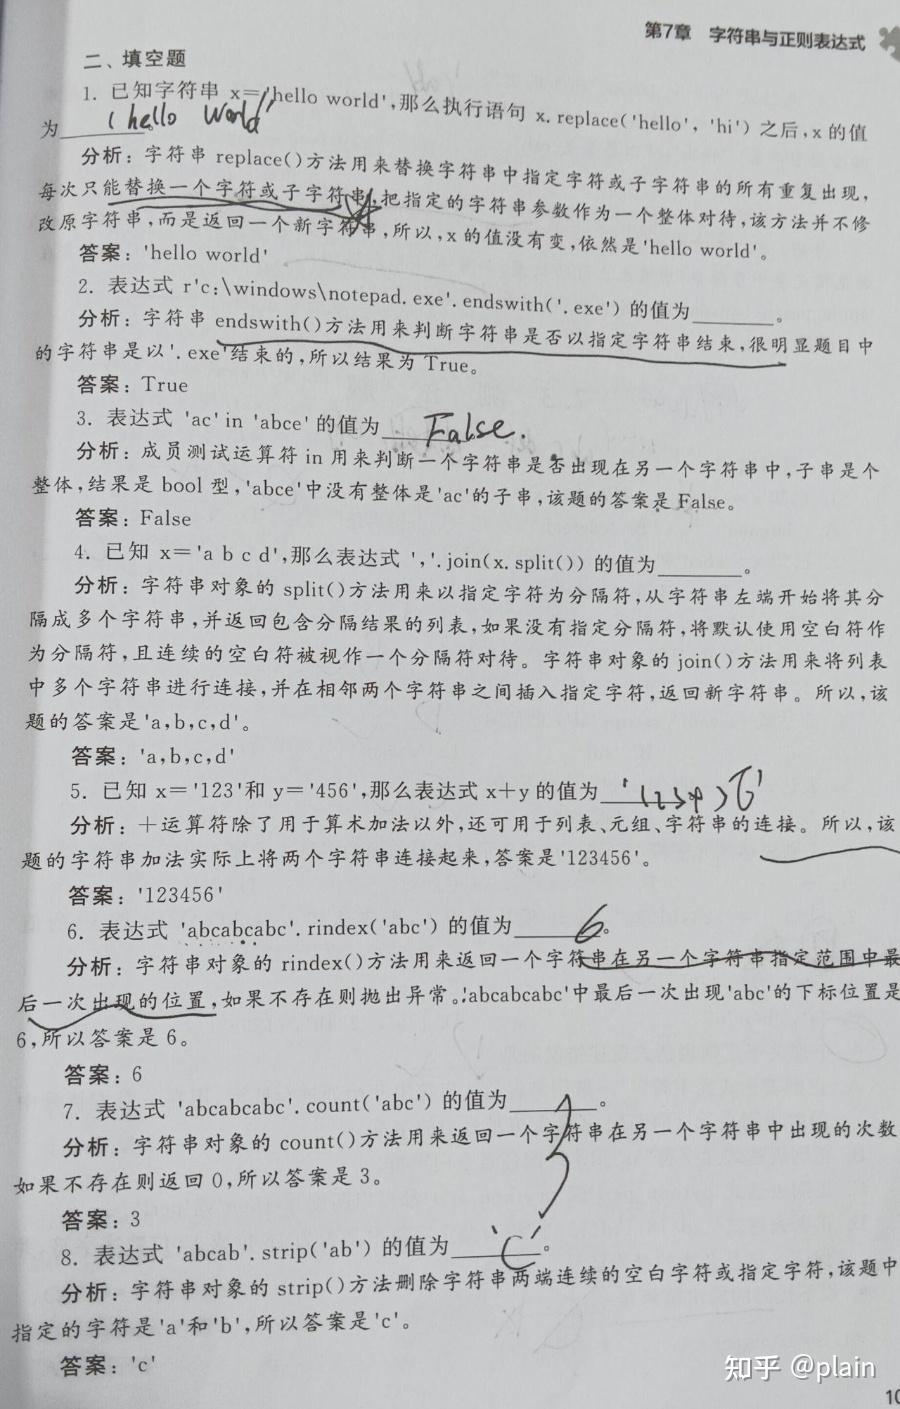 第7章 字符串与正则表达式
二、填空题
1. 已知字符串 x='hello world',那么执行语句 x.replace('hello', 'hi') 之后,x 的值
为 'hello world'
分析:字符串 replace()方法用来替换字符串中指定字符或子字符串的所有重复出现,
每次只能替换一个字符或子字符串,把指定的字符串参数作为一个整体对待,该方法并不修
改原字符串,而是返回一个新字符串,所以,x 的值没有变,依然是'hello world'。
答案:'hello world'
2. 表达式 r'c:\windows\notepad.exe'.endswith('.exe') 的值为________。
分析:字符串 endswith()方法用来判断字符串是否以指定字符串结束,很明显题目中
的字符串是以'.exe'结束的,所以结果为 True。
答案:True
3. 表达式 'ac' in 'abce' 的值为 False.
分析:成员测试运算符 in 用来判断一个字符串是否出现在另一个字符串中,子串是个
整体,结果是 bool 型,'abce'中没有整体是'ac'的子串,该题的答案是 False。
答案:False
4. 已知 x='a b c d',那么表达式 ','.join(x.split()) 的值为________。
分析:字符串对象的 split()方法用来以指定字符为分隔符,从字符串左端开始将其分
隔成多个字符串,并返回包含分隔结果的列表,如果没有指定分隔符,将默认使用空白符作
为分隔符,且连续的空白符被视作一个分隔符对待。字符串对象的 join()方法用来将列表
中多个字符串进行连接,并在相邻两个字符串之间插入指定字符,返回新字符串。所以,该
题的答案是'a,b,c,d'。
答案:'a,b,c,d'
5. 已知 x='123'和 y='456',那么表达式 x+y 的值为 '123456'
分析:+运算符除了用于算术加法以外,还可用于列表、元组、字符串的连接。所以,该
题的字符串加法实际上将两个字符串连接起来,答案是'123456'。
答案:'123456'
6. 表达式 'abcabcabc'.rindex('abc') 的值为 6。
分析:字符串对象的 rindex()方法用来返回一个字符串在另一个字符串指定范围中最
后一次出现的位置,如果不存在则抛出异常。'abcabcabc'中最后一次出现'abc'的下标位置是
6,所以答案是 6。
答案:6
7. 表达式 'abcabcabc'.count('abc') 的值为 3。
分析:字符串对象的 count()方法用来返回一个字符串在另一个字符串中出现的次数
如果不存在则返回 0,所以答案是 3。
答案:3
8. 表达式 'abcab'.strip('ab') 的值为 'c'。
分析:字符串对象的 strip()方法删除字符串两端连续的空白字符或指定字符,该题中
指定的字符是'a'和'b',所以答案是'c'。
答案:'c'
知乎 @plain
10